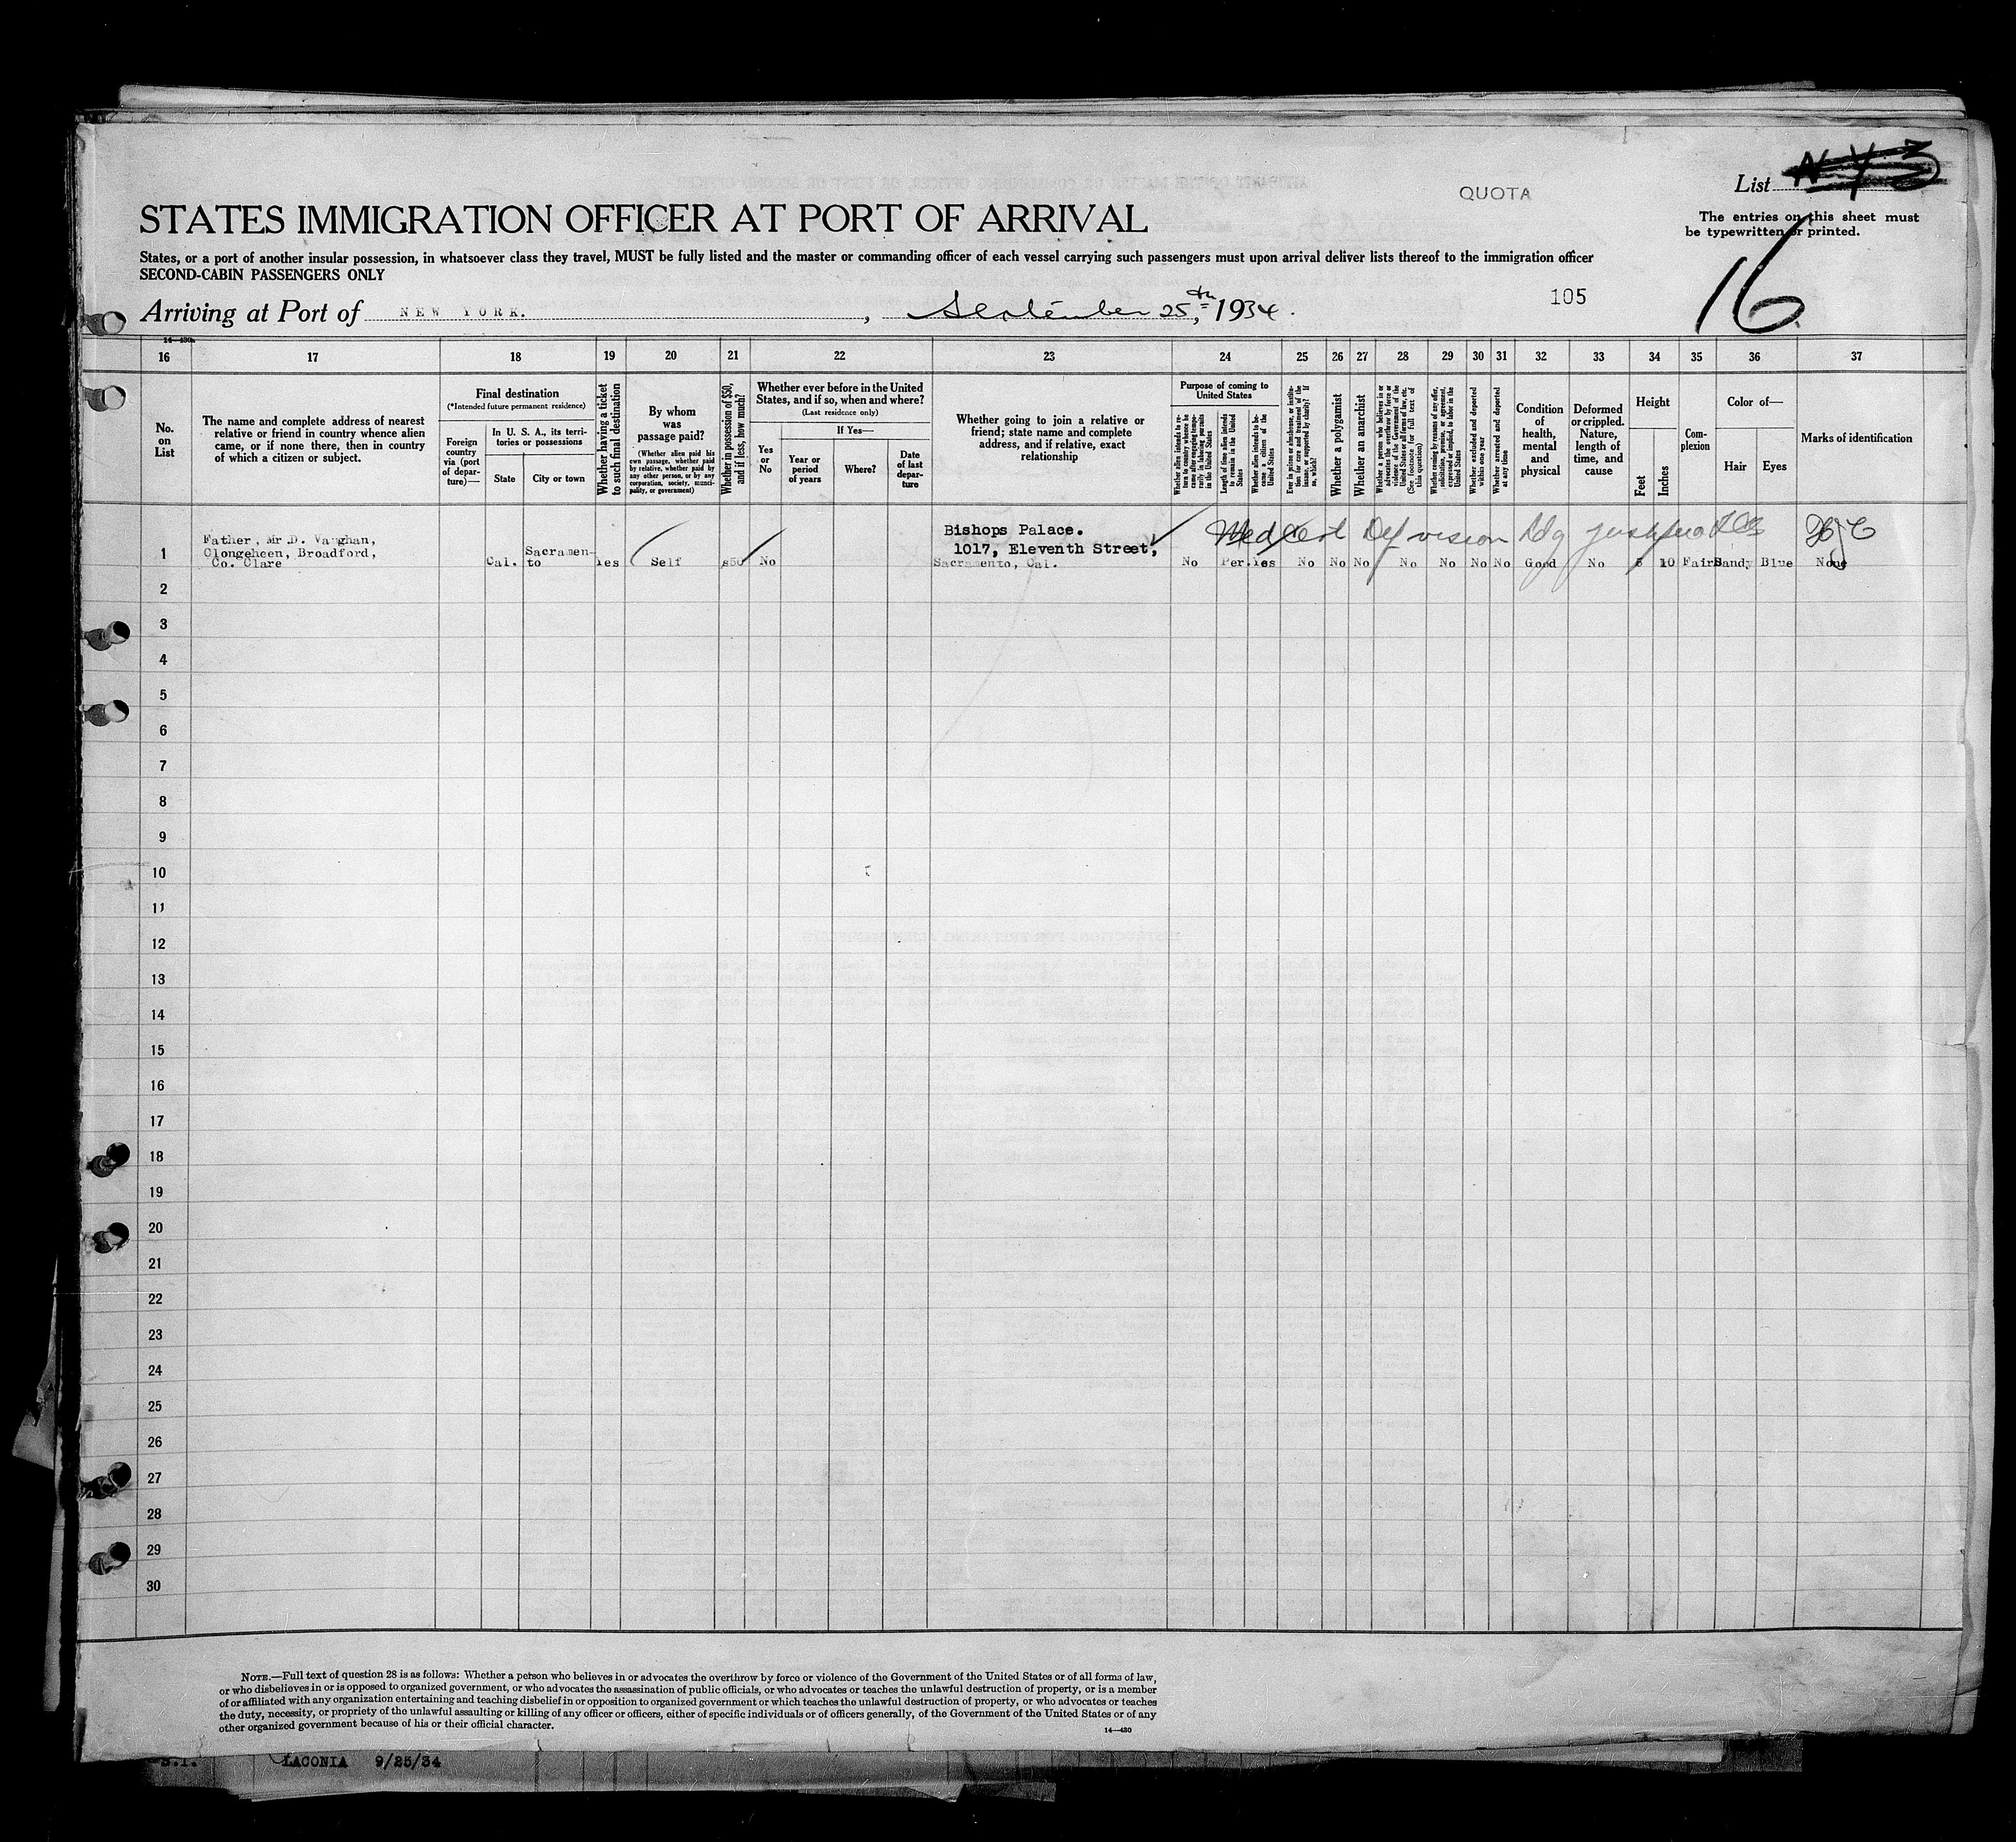 QUOTA
List N Y 3
STATES IMMIGRATION OFFICER AT PORT OF ARRIVAL
The entries on this sheet must
be typewritten or printed.
16
States, or a port of another insular possession, in whatsoever class they travel, MUST be fully listed and the master or commanding officer of each vessel carrying such passengers must upon arrival deliver lists thereof to the immigration officer
SECOND-CABIN PASSENGERS ONLY
105
Arriving at Port of NEW YORK. , September 25th, 1934.
14—430a
16 17 18 19 20 21 22 23 24 25 26 27 28 29 30 31 32 33 34 35 36 37
No.
on
List
The name and complete address of nearest
relative or friend in country whence alien
came, or if none there, then in country
of which a citizen or subject.
Final destination
(*Intended future permanent residence)
Foreign
country
via (port
of depar-
ture)—
In U. S. A., its terri-
tories or possessions
State
City or town
Whether having a ticket
to such final destination
By whom
was
passage paid?
(Whether alien paid his
own passage, whether paid
by relative, whether paid by
any other person, or by any
corporation, society, munici-
pality, or government)
Whether in possession of $50,
and if less, how much?
Whether ever before in the United
States, and if so, when and where?
(Last residence only)
Yes
or
No
If Yes—
Year or
period
of years
Where?
Date
of last
depar-
ture
Whether going to join a relative or
friend; state name and complete
address, and if relative, exact
relationship
Purpose of coming to
United States
Whether alien intends to re-
turn to country whence he
came after engaging tempo-
rarily in laboring pursuits
in the United States
Length of time alien intends
to remain in the United
States
Whether alien intends to be-
come a citizen of the
United States
Ever in prison or almshouse, or institu-
tion for care and treatment of the
insane, or supported by charity? If
so, which?
Whether a polygamist
Whether an anarchist
Whether a person who believes in or
advocates the overthrow by force or
violence of the Government of the
United States or all forms of law, etc.
(See footnote for full text of
this question)
Whether coming by reasons of any offer,
solicitation, promise, or agreement,
expressed or implied, to labor in the
United States
Whether excluded and deported
within one year
Whether arrested and deported
at any time
Condition
of
health,
mental
and
physical
Deformed
or crippled.
Nature,
length of
time, and
cause
Height
Feet
Inches
Com-
plexion
Color of—
Hair
Eyes
Marks of identification
1
Father, Mr D. Vaughan,
Clongeheen, Broadford,
Co. Clare
Cal.
Sacramen-
to
Yes
Self
$50
No
Bishops Palace.
1017, Eleventh Street,
Sacramento, Cal.
Med Cert Def vision
No Per. Yes No No No No No No No Good No 5 10 Fair Sandy Blue None
2
3
4
5
6
7
8
9
10
11
12
13
14
15
16
17
18
19
20
21
22
23
24
25
26
27
28
29
30
NOTE.—Full text of question 28 is as follows: Whether a person who believes in or advocates the overthrow by force or violence of the Government of the United States or of all forms of law,
or who disbelieves in or is opposed to organized government, or who advocates the assassination of public officials, or who advocates or teaches the unlawful destruction of property, or is a member
of or affiliated with any organization entertaining and teaching disbelief in or opposition to organized government or which teaches the unlawful destruction of property, or who advocates or teaches
the duty, necessity, or propriety of the unlawful assaulting or killing of any officer or officers, either of specific individuals or of officers generally, of the Government of the United States or of any
other organized government because of his or their official character.
14—430
S.I. LACONIA 9/25/34